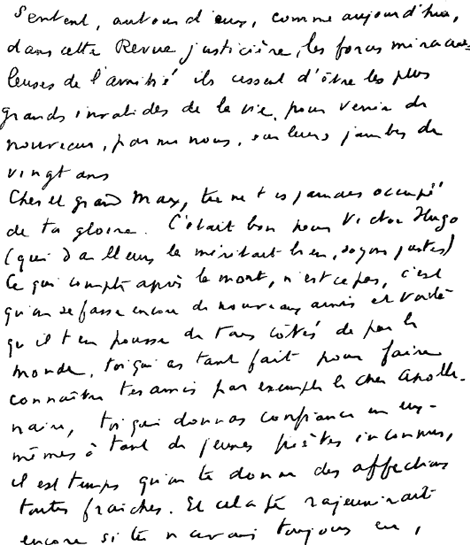 sentent, autour d'eux, comme aujourd'hui,
dans cette Revue justicière, les forces miracu-
leuses de l'amitié ils cessent d'être les plus
grands invalides de la vie pour venir de
nouveau, parmi nous, sur leurs jambes de
vingt ans
Cher et grand Max, tu ne t'es jamais occupé
de ta gloire. C'était bon pour Victor Hugo
(qui d'ailleurs la méritait bien, soyons justes)
Ce qui compte après la mort, n'est ce pas, c'est
qu'on se fasse encore de nouveaux amis et voilà
qu'il t'en pousse de tous côtés de par le
monde, toi qui as tant fait pour faire
connaître tes amis par exemple le cher Apolli-
naire, toi qui donnas confiance en eux-
mêmes à tant de jeunes poètes inconnus,
il est temps qu'on te donne des affections
toutes fraîches. Et cela te rajeunirait
encore si tu n'avais toujours eu,